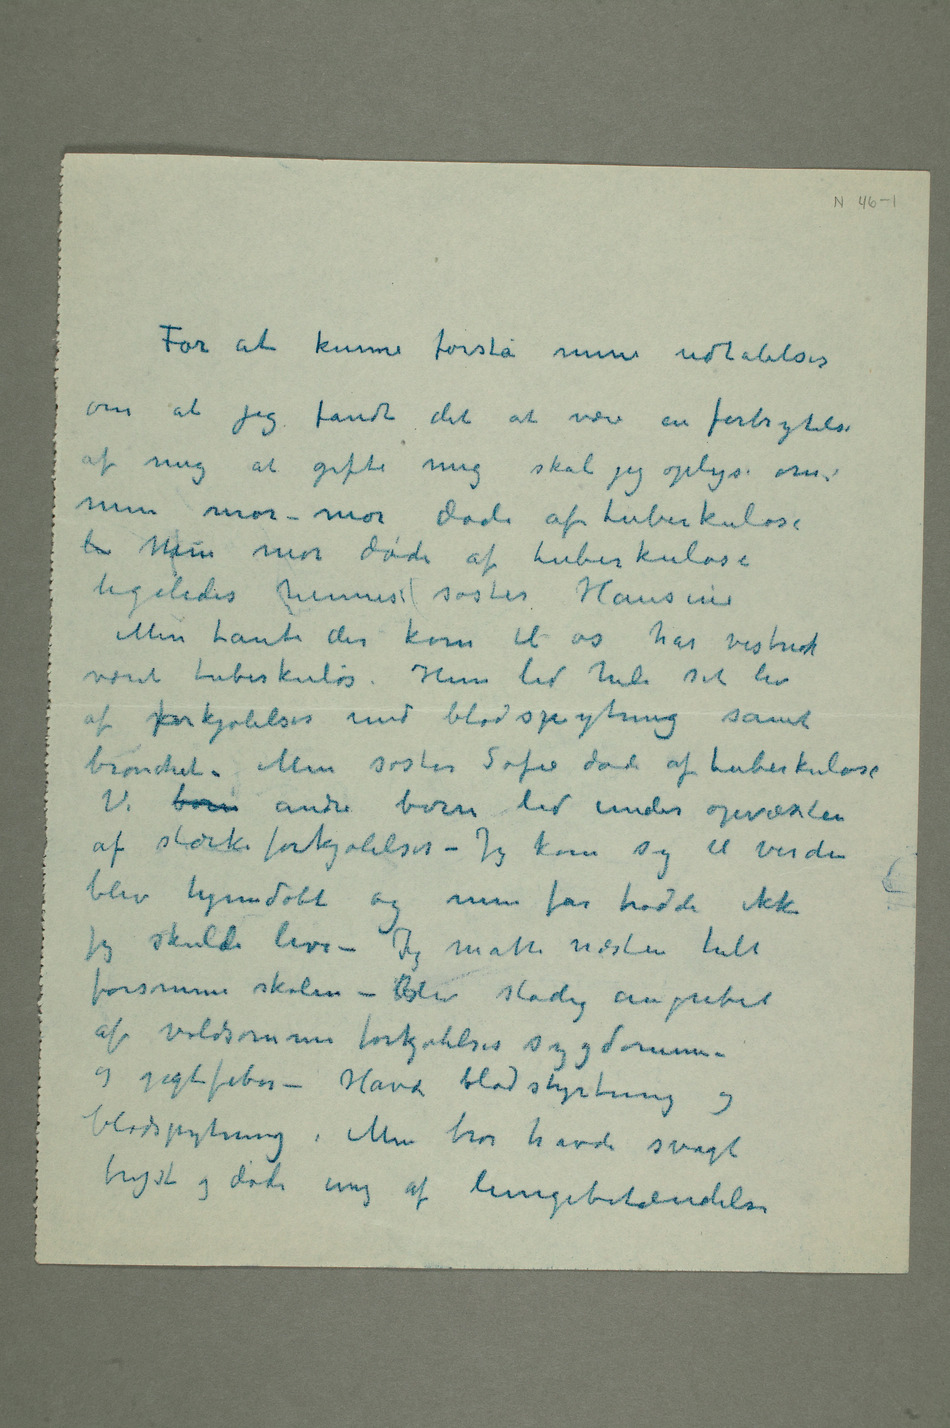 N 46-1
For at kunne forstå mine udtalelser
om at jeg fandt det at være en forbrytelse
af mig at gifte mig skal jeg oplyse om:
min mor-mor døde af tuberkulose
Min mor døde af tuberkulose
ligeledes hennes søster Hansine
Min tante der kom til os har vistnok
været tuberkuløs. Hun led hele sit liv
af forkjølelser med blodspytning samt
bronchet. Min søster Sofie døde af tuberkulose
Vi børn andre børn led under opvæksten
af stærke forkjølelser – Jeg kom syg til verden
blev hjemdøbt og min far trodde ikke
jeg skulde leve – Jeg måtte næsten helt
forsømme skolen – Blev stadig angrebet
af voldsomme forkjølelses sygdomme
og gigtfeber – Havde blodstyrtning og
blodspytning. Min bror havde svagt
bryst og døde ung af lungebetændelse